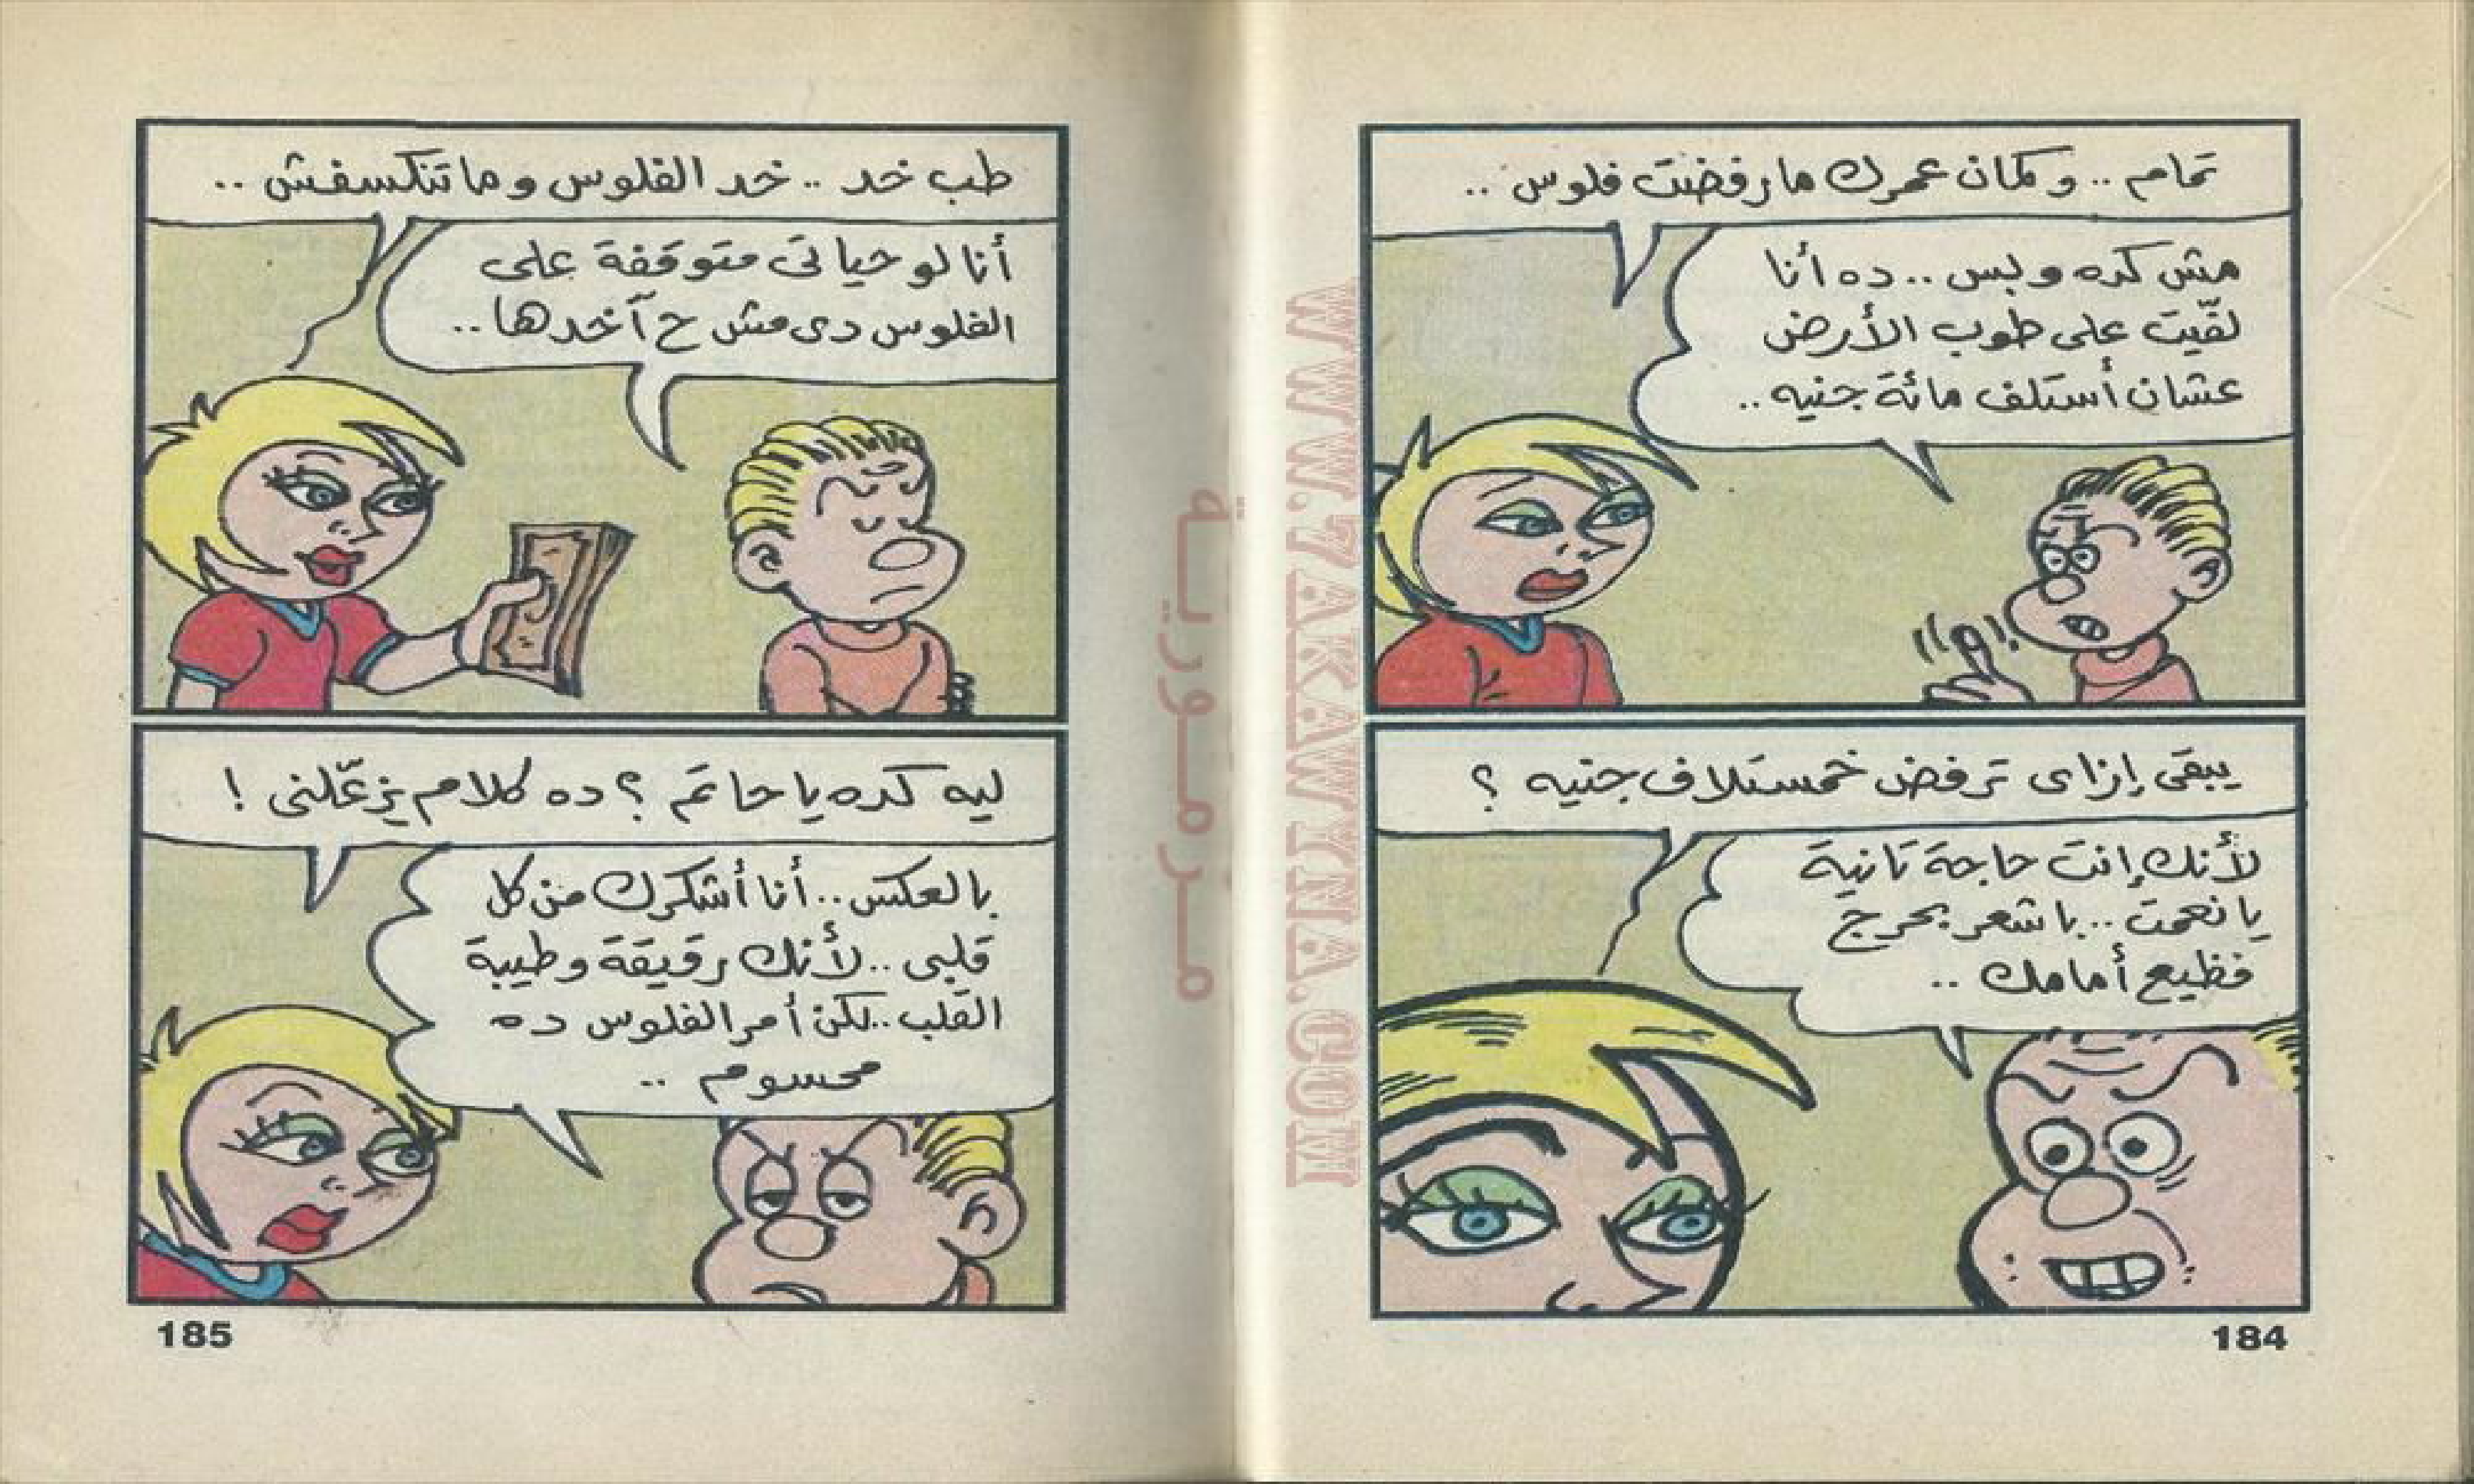 تمام .. وكمان عمرك ما رفضت فلوس ..
مش كده وبس .. ده أنا
لقّيت على طوب الأرض
عشان أستلف مائة جنيه ..
يبقى إزاى ترفض خمستلاف جنيه ؟
لأنك إنت حاجة تانية
يا نعمت .. باشعر بحرج
فظيع أمامك ..
184
طب خد .. خد الفلوس وما تنكسفش ..
أنا لو حياتى متوقفة على
الفلوس دى مش ح آخدها ..
ليه كده يا حاتم ؟ ده كلام يزعّلنى !
بالعكس .. أنا أشكرك من كل
قلبى .. لأنك رقيقة وطيبة
القلب .. لكن أمر الفلوس ده
محسوم ..
185
WWW.7AKAWYNA.COM